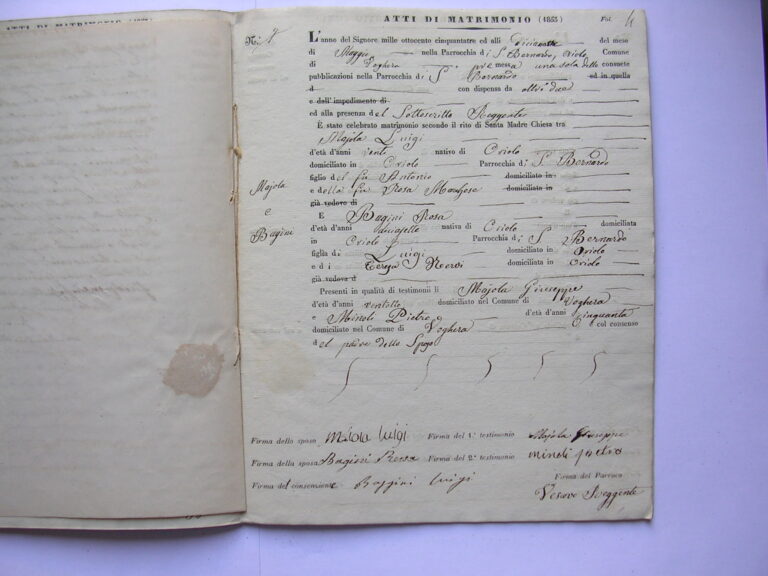 ATTI DI MATRIMONIO (1853) Fol. 4
N.° 4
L'anno del Signore mille ottocento cinquantatre ed alli del mese
di Maggio nella Parrocchia di S. Bernardo, Oriolo Comune
di Voghera premessa una sola delle consuete
pubblicazioni nella Parrocchia di S. Bernardo ed in quella
d con dispensa da altre due
e dall'impedimento di
ed alla presenza del Sottoscritto Reggente
È stato celebrato matrimonio secondo il rito di Santa Madre Chiesa tra
Majola Luigi
d'età d'anni venti nativo di Oriolo
domiciliato in Oriolo Parrocchia di S. Bernardo
figlio del fu Antonio domiciliato in
e della fu Rosa domiciliata in
già vedovo di
E Bagini Rosa
d'età d'anni nativa di Oriolo domiciliata
in Oriolo Parrocchia di S. Bernardo
figlia di Luigi domiciliato in Oriolo
e di Teresa Nervi domiciliata in Oriolo
già vedova d
Presenti in qualità di testimonii li Majola Giuseppe
d'età d'anni ventotto domiciliato nel Comune di Voghera
e Minoli Pietro d'età d'anni Cinquanta
domiciliato nel Comune di Voghera col consenso
del padre della Sposa
Majola
e
Bagini
Firma dello sposo maiola luigi Firma del 1.° testimonio Majola Giuseppe
Firma della sposa Bagini Rosa Firma del 2.° testimonio minoli pietro
Firma del consensiente Baggini luigi Firma del Parroco
Reggente